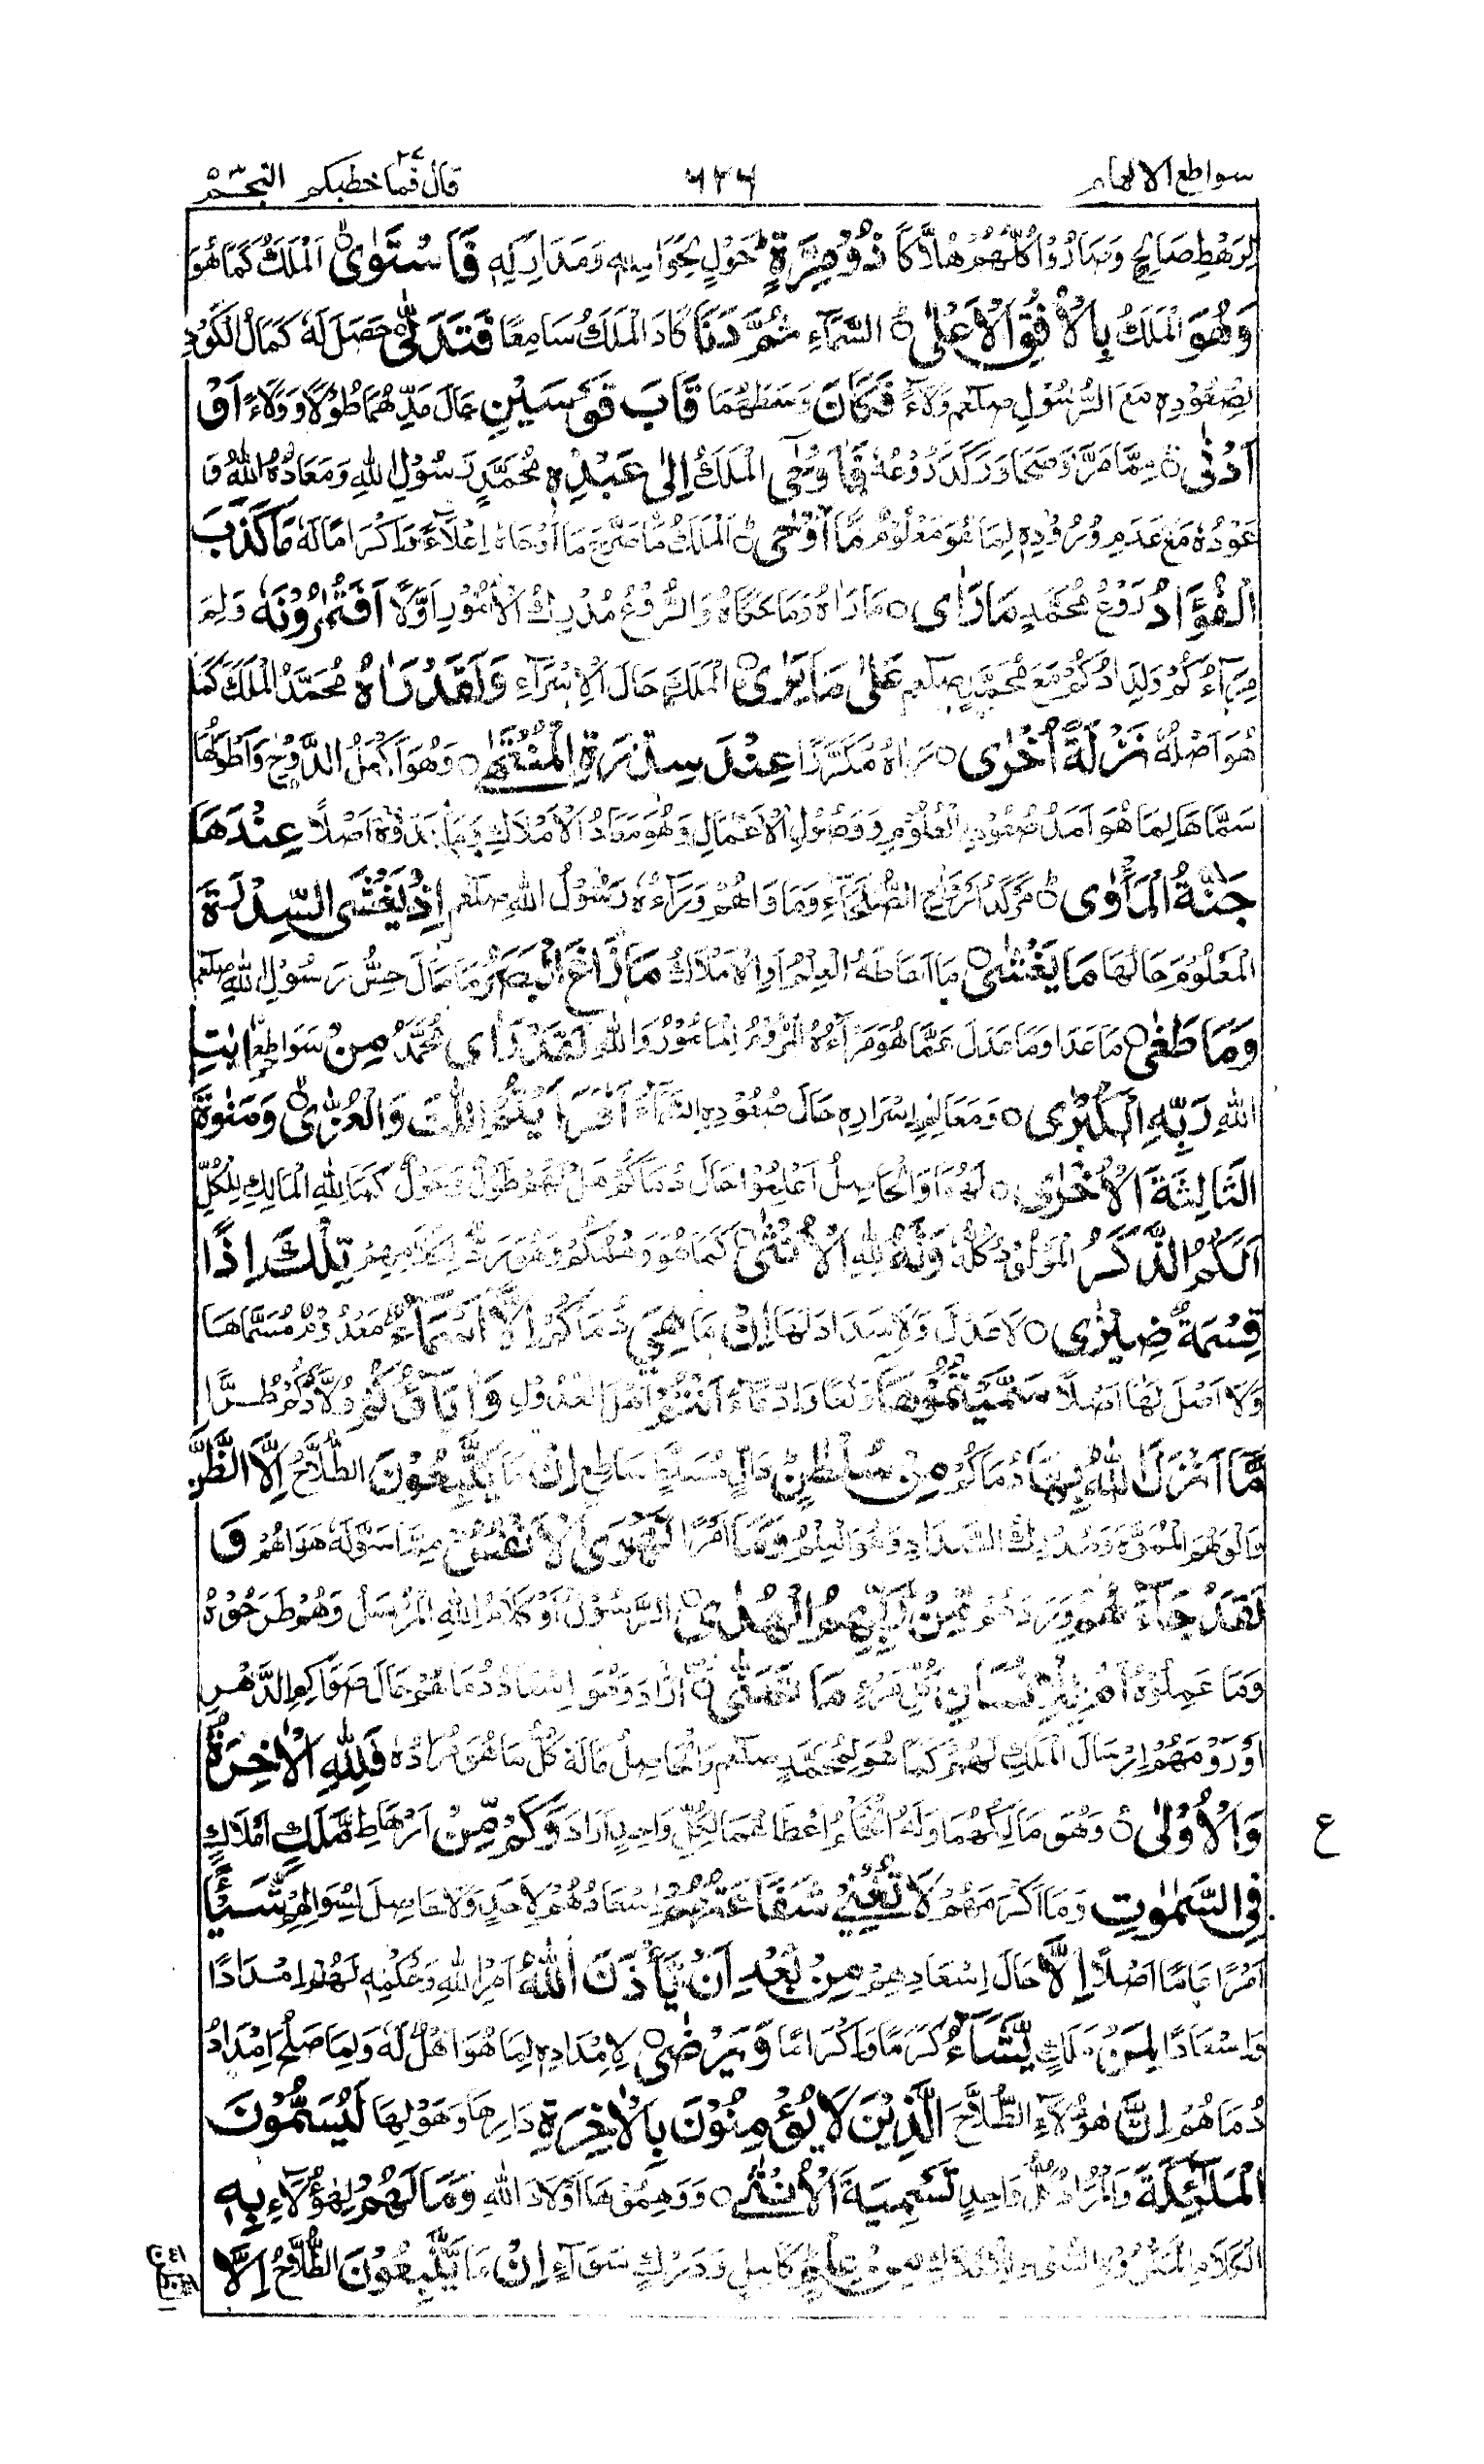 سواطع الالهام ٦٢٦ قال فما خطبكم ٢٧ النجم ٥٣
لِرَهْطِ صَالِحٍ وَصَارُوْا كُلُّهُمْ هُلَّاكًا ذُوْ مِرَّةٍ حَوْلٍ لِحَوَاسِّهٖ وَمَدَارِكِهٖ فَاسْتَوٰى الْمَلَكُ كَمَا هُوَ
وَهُوَ الْمَلَكُ بِالْاُفُقِ الْاَعْلٰى السَّمَآءِ ثُمَّ دَنَا كَادَ الْمَلَكُ سَامِعًا فَتَدَلّٰى حَصَلَ لَهٗ كَمَالُ
لِصُعُوْدِهٖ مَعَ الرَّسُوْلِ صلعم وَلَاءً فَكَانَ وَسَطَهُمَا قَابَ قَوْسَيْنِ حَالَ مَدِّهِمَا طُوْلًا وَوَلَاءً اَوْ
اَدْنٰى مِمَّا مَرَّ وَصَحَا وَرَكَدَ رَوْعُهٗ فَاَوْحٰى الْمَلَكُ اِلٰى عَبْدِهٖ مُحَمَّدٍ رَسُوْلِ اللهِ وَمَعَادُهُ اللهُ وَ
عَوْدُهٗ مَعَ عَدَمِ وُرُوْدِهٖ لِمَا هُوَ مَعْلُوْمٌ مَا اَوْحٰى الْمَلَكُ مَا صَرَّحَ مَا اَوْحَاهُ اِعْلَاءً وَاِكْرَامًا لَهٗ مَا كَذَبَ
الْفُؤَادُ رَوْعُ مُحَمَّدٍ مَا رَاٰى مَا رَاٰهُ وَمَا حَكَاهُ وَالرَّوْعُ مُدْرِكُ الْاُمُوْرِ اَوَّلًا اَفَتُمٰرُوْنَهٗ وَلِمَ
مِرَآءُكُمْ وَلِدَادُكُمْ مَعَ مُحَمَّدٍ صلعم عَلٰى مَا يَرٰى الْمَلَكَ حَالَ الْاِسْرَآءِ وَلَقَدْ رَاٰهُ مُحَمَّدٌ الْمَلَكَ كَمَا
هُوَ اَصْلُهٗ نَزْلَةً اُخْرٰى رَاٰهُ مُكَرَّرًا عِنْدَ سِدْرَةِ الْمُنْتَهٰى وَهُوَ اَكْمَلُ الدَّوْحِ وَاَطْوَلُهَا
سَمَّاهَا لِمَا هُوَ اَمَدُ صُعُوْدِ الْعُلُوْمِ وَوُصُوْلِ الْاَعْمَالِ وَهُوَ مَعَادُ الْاَمْلَاكِ وَمَا عَدَوْهُ اَصْلًا عِنْدَهَا
جَنَّةُ الْمَاْوٰى مَرْكَدُ اَرْوَاحِ الصُّلَحَآءِ وَمَاْوَاهُمْ وَرَآءَهٗ رَسُوْلُ اللهِ صلعم اِذْ يَغْشَى السِّدْرَةَ
الْمَعْلُوْمَ حَالُهَا مَا يَغْشٰى مَا اَحَاطَهُ الْعِلْمُ اَوِ الْاَمْلَاكُ مَا زَاغَ الْبَصَرُ مَا مَالَ حِسُّ رَسُوْلِ اللهِ صلعم
وَمَا طَغٰى مَا عَدَا وَمَا عَدَلَ عَمَّا هُوَ مَرْاٰهُ الْمَرُوْمُ الْمَامُوْرُ وَاللهِ لَقَدْ رَاٰى مُحَمَّدٌ مِنْ سَوَاطِعِ اٰيٰتِ
اللهِ رَبِّهِ الْكُبْرٰى وَمَعَالِمِ اَسْرَارِهٖ حَالَ صُعُوْدِهِ السَّمَآءَ اَفَرَءَيْتُمُ اللّٰتَ وَالْعُزّٰى وَمَنٰوةَ
الثَّالِثَةَ الْاُخْرٰى لَهُمَا وَالْحَاصِلُ اَعْلِمُوْا حَالَ دُمَاكُمْ هَلْ لَهُمْ طَوْلٌ وَحَوْلٌ كَمَا لِلّٰهِ الْمَالِكِ لِلْكُلِّ
اَلَكُمُ الذَّكَرُ الْمَوْلُوْدُ كُلُّهٗ وَلَهُ لِلّٰهِ الْاُنْثٰى كَمَا هُوَ وَهْمُكُمْ وَهُوَ رَدٌّ لِكَلَامِهِمْ تِلْكَ اِذًا
قِسْمَةٌ ضِيْزٰى لَا عَدْلَ وَلَا سَدَادَ لَهَا اِنْ مَا هِيَ دُمَاكُمْ اِلَّا اَسْمَآءٌ مَعْدُوْمٌ مُسَمَّاهَا
وَلَا اَصْلَ لَهَا اَصْلًا سَمَّيْتُمُوْهَا وَلَعًا وَادِّعَآءً اَنْتُمْ اَهْلَ الْعُدُوْلِ وَاٰبَآؤُكُمْ وُلَّادُكُمْ طُرًّا
مَا اَنْزَلَ اللهُ بِهَا دُمَاكُمْ مِنْ سُلْطٰنٍ دَالٍّ مُسَدَّدٍ سَاطِعٍ اِنْ مَا يَتَّبِعُوْنَ الطُّلَّاحُ اِلَّا الظَّنَّ
وَالْوَهْمَ الْمُمَوَّهَ وَمُدْرِكُ السَّدَادِ وَهُوَ الْعِلْمُ وَمَا اَمْرًا تَهْوَى الْاَنْفُسُ مِمَّا سَوَّلَهٗ هَوَاهُمْ وَ
لَقَدْ جَآءَهُمْ وَرَدَهُمْ مِنْ رَبِّهِمُ الْهُدٰى الرَّسُوْلُ اَوْ كَلَامُ اللهِ الْمُرْسَلُ وَهُمْ طَرَحُوْهُ
وَمَا عَمِلُوْهُ اَمْ لِلْاِنْسَانِ كُلِّ مَرْءٍ مَا تَمَنّٰى اَرَادَ وَهُوَ اِسْعَادُ دُمَاهُمْ حَالَ
اَوْ رَوْمُهُمْ اِرْسَالَ الْمَلَكِ لَهُمْ كَمَا هُوَ لِمُحَمَّدٍ صلعم وَالْحَاصِلُ مَا لَهٗ كُلُّ مَا هُوَ مُرَادُهٗ فَلِلّٰهِ الْاٰخِرَةُ
وَالْاُوْلٰى وَهُوَ مَالِكُهُمَا وَلَهُ الْحُكْمُ اِعْطَآءُهُمَا لِكُلِّ وَاحِدٍ اَرَادَ وَكَمْ مِنْ اَرْهَاطِ مَلَكٍ اَمْلَاكٍ
ع
فِى السَّمٰوٰتِ وَمَا اَكْرَمَهُمْ لَا تُغْنِيْ شَفَاعَتُهُمْ اِسْعَادُهُمْ لِاَحَدٍ وَلَا حَاصِلَ لِسُوَالِهِمْ شَيْئًا
اَمْرًا مَا اَصْلًا اِلَّا حَالَ اِسْعَادِهِمْ مِنْ بَعْدِ اَنْ يَاْذَنَ اللهُ اَمْرِ اللهِ وَحُكْمِهٖ لَهُمْ اِمْدَادًا
وَاِسْعَادًا لِمَنْ مَلَكٍ يَشَآءُ كَرَمًا وَاِكْرَامًا وَيَرْضٰى لِاِمْدَادِهٖ لِمَا هُوَ اَهْلٌ لَهٗ وَلِمَا صَلُحَ اِمْدَادُ
دُمَاهُمْ اِنَّ هٰؤُلَآءِ الطُّلَّاحَ الَّذِيْنَ لَا يُؤْمِنُوْنَ بِالْاٰخِرَةِ دَارِهَا وَهَوْلِهَا لَيُسَمُّوْنَ
الْمَلٰٓئِكَةَ وَالْمُرَادُ كُلُّ وَاحِدٍ تَسْمِيَةَ الْاُنْثٰى وَوَهِمُوْهَا اَوْلَادَ اللهِ وَمَا لَهُمْ لِهٰؤُلَاءِ بِهٖ
الْكَلَامِ مِنْ عِلْمٍ كَامِلٍ وَدَرْكٍ سَوَآءٍ اِنْ مَا يَتَّبِعُوْنَ الطُّلَّاحُ اِلَّا